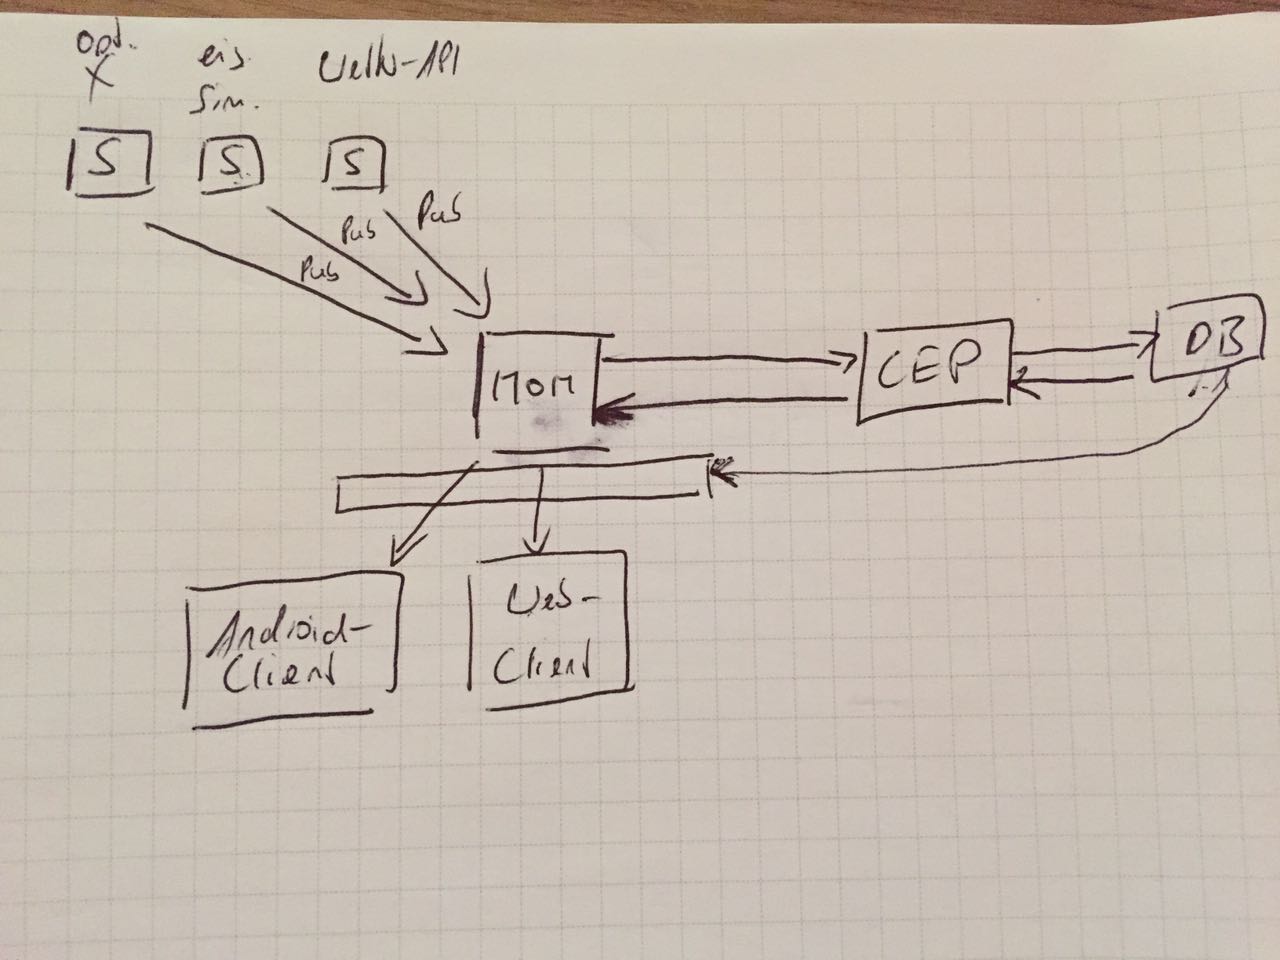 opt.
X
eig.
Sim.
S
S
S
Pub
Pub
Pub
MOM
CEP
DB
Android-
Client
Web-
Client